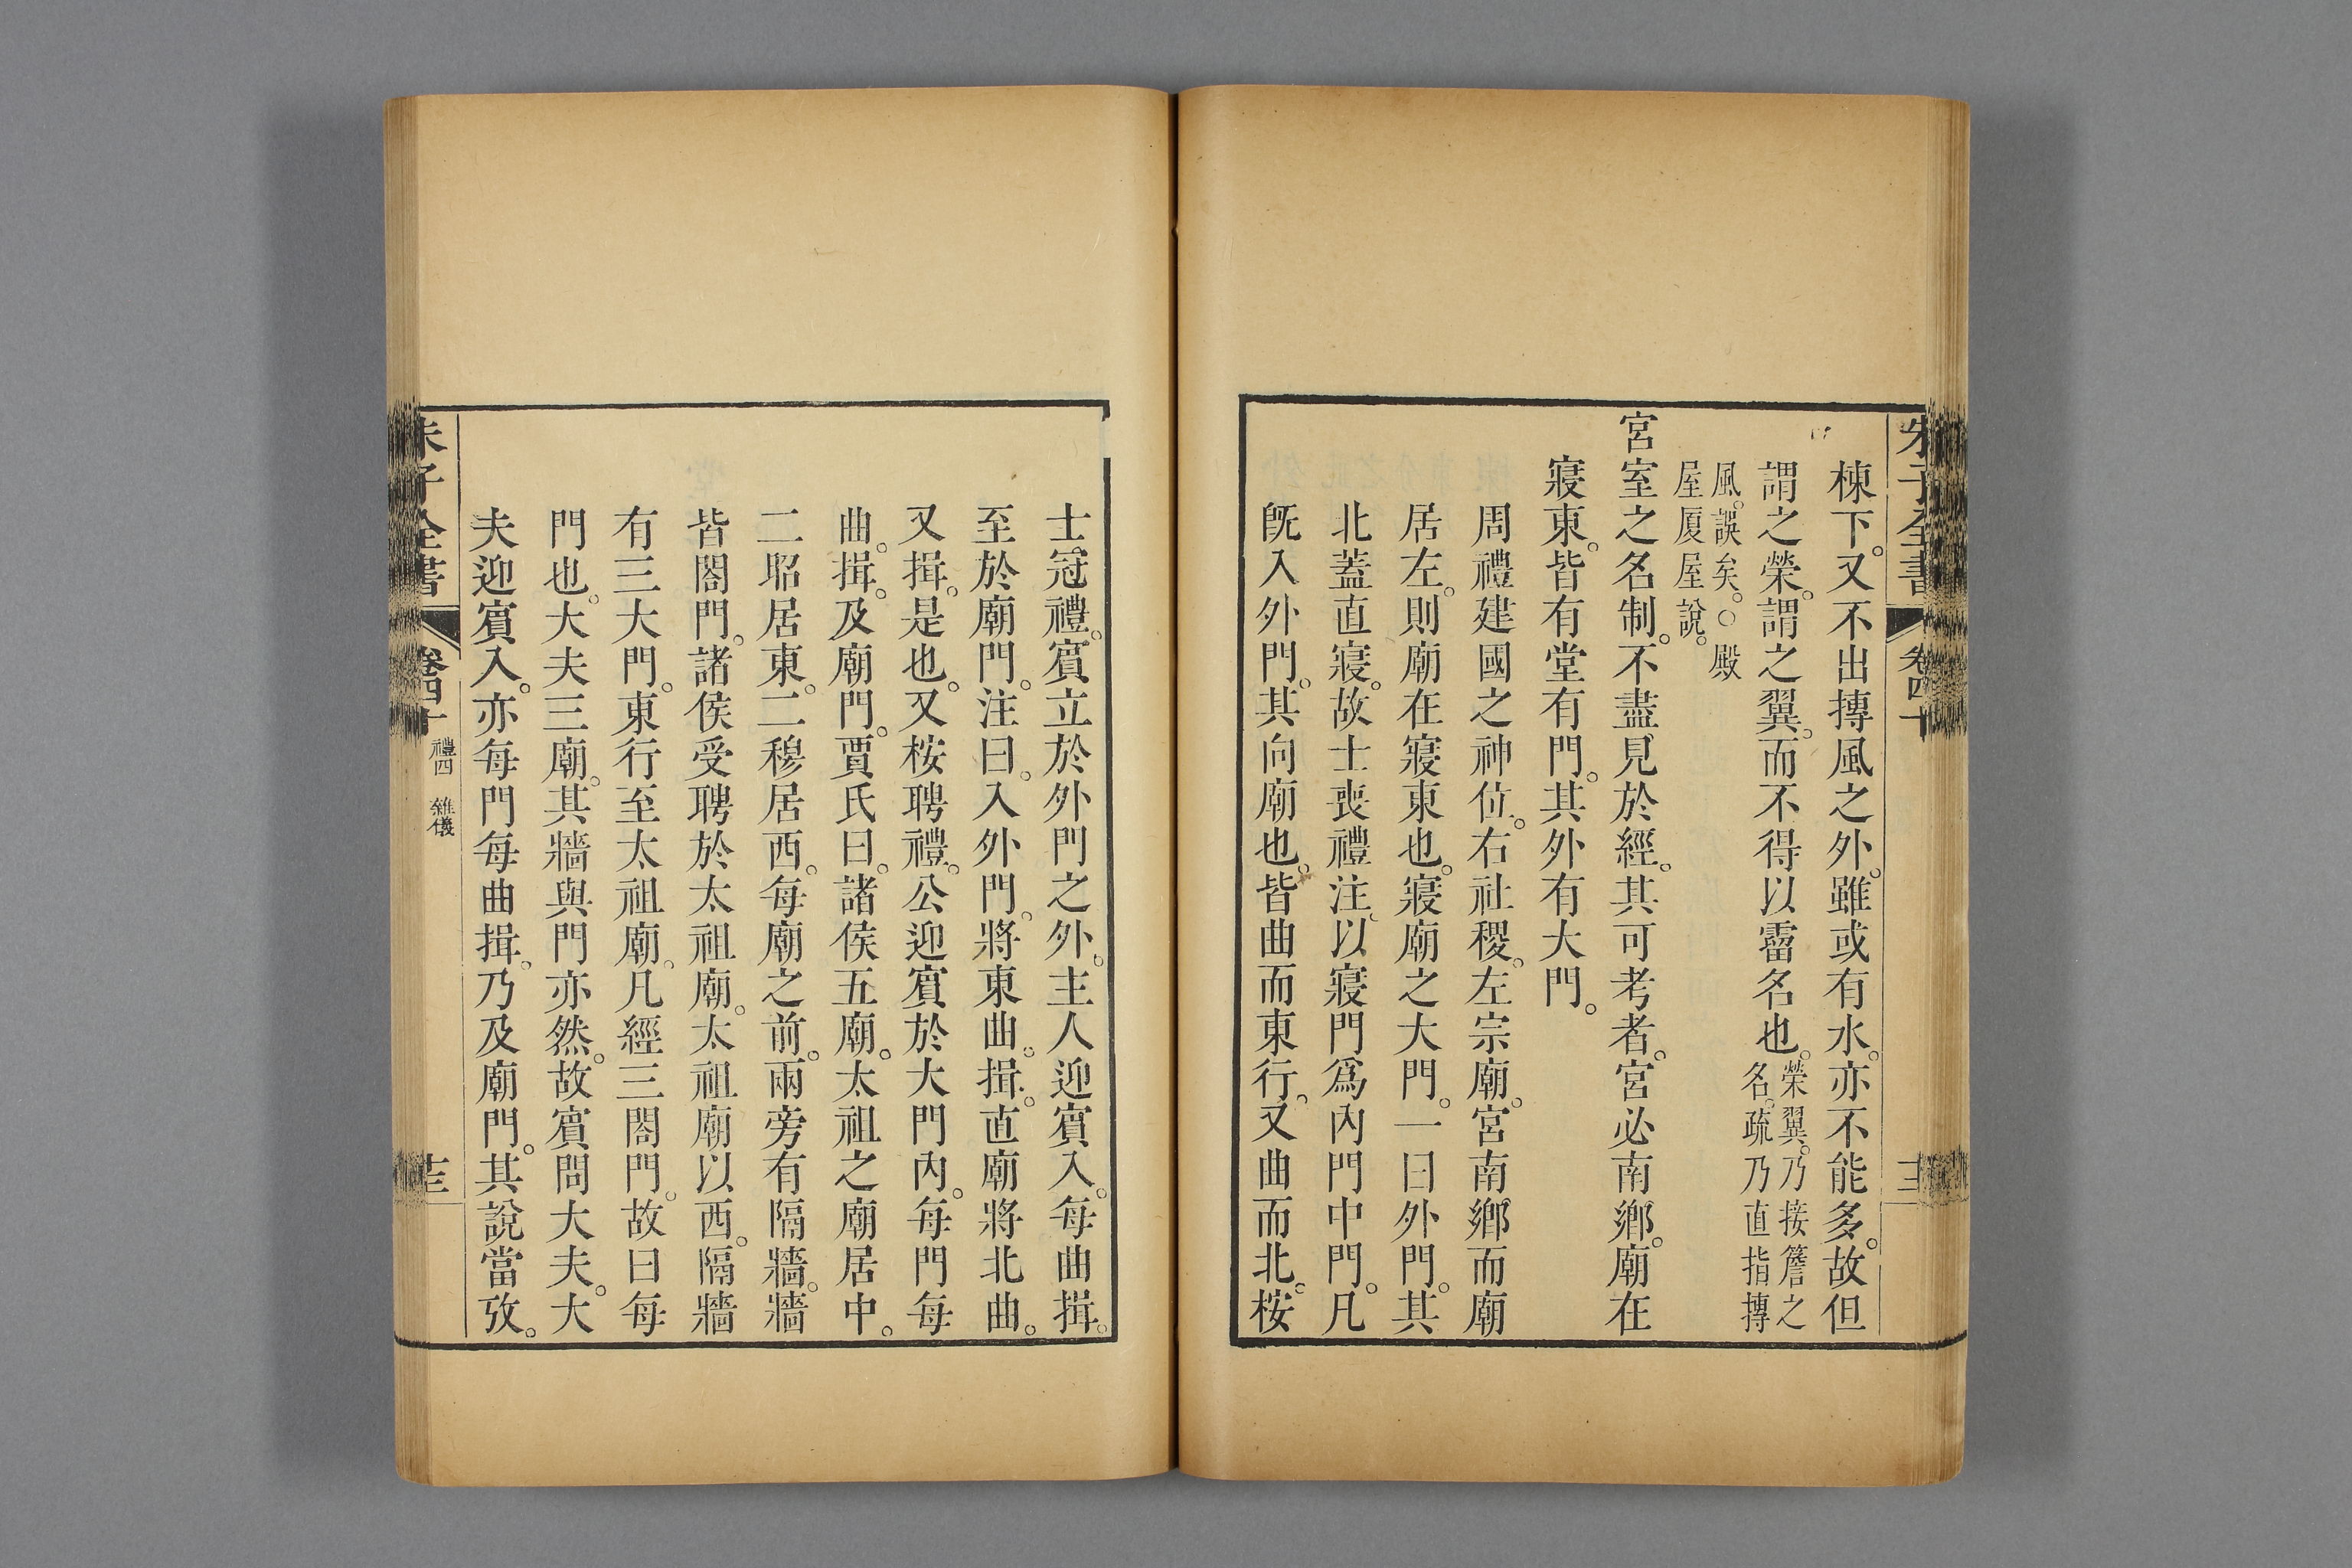 朱子全書 卷四十 十二
棟下。又不出摶風之外。雖或有水。亦不能多。故但
謂之榮。謂之翼。而不得以霤名也。榮翼。乃接簷之
名。疏乃直指摶
風。誤矣。○殿
屋厦屋說。
宮室之名制。不盡見於經。其可考者。宮必南鄉。廟在
寢東。皆有堂有門。其外有大門。
周禮建國之神位。右社稷。左宗廟。宮南鄉而廟
居左。則廟在寢東也。寢廟之大門。一曰外門。其
北蓋直寢。故士喪禮注。以寢門爲內門中門。凡
旣入外門。其向廟也。皆曲而東行。又曲而北。桉
士冠禮。賓立於外門之外。主人迎賓入。每曲揖。
至於廟門。注曰。入外門。將東曲。揖。直廟將北曲。
又揖。是也。又桉聘禮。公迎賓於大門內。每門每
曲。揖。及廟門。賈氏曰。諸侯五廟。太祖之廟居中。
二昭居東。二穆居西。每廟之前。兩旁有隔牆。牆
皆閤門。諸侯受聘於太祖廟。太祖廟以西。隔牆
有三大門。東行至太祖廟。凡經三閤門。故曰每
門也。大夫三廟。其牆與門亦然。故賓問大夫。大
夫迎賓入。亦每門每曲揖。乃及廟門。其說當攷。
朱子全書 卷四十 禮四 雜儀 十三